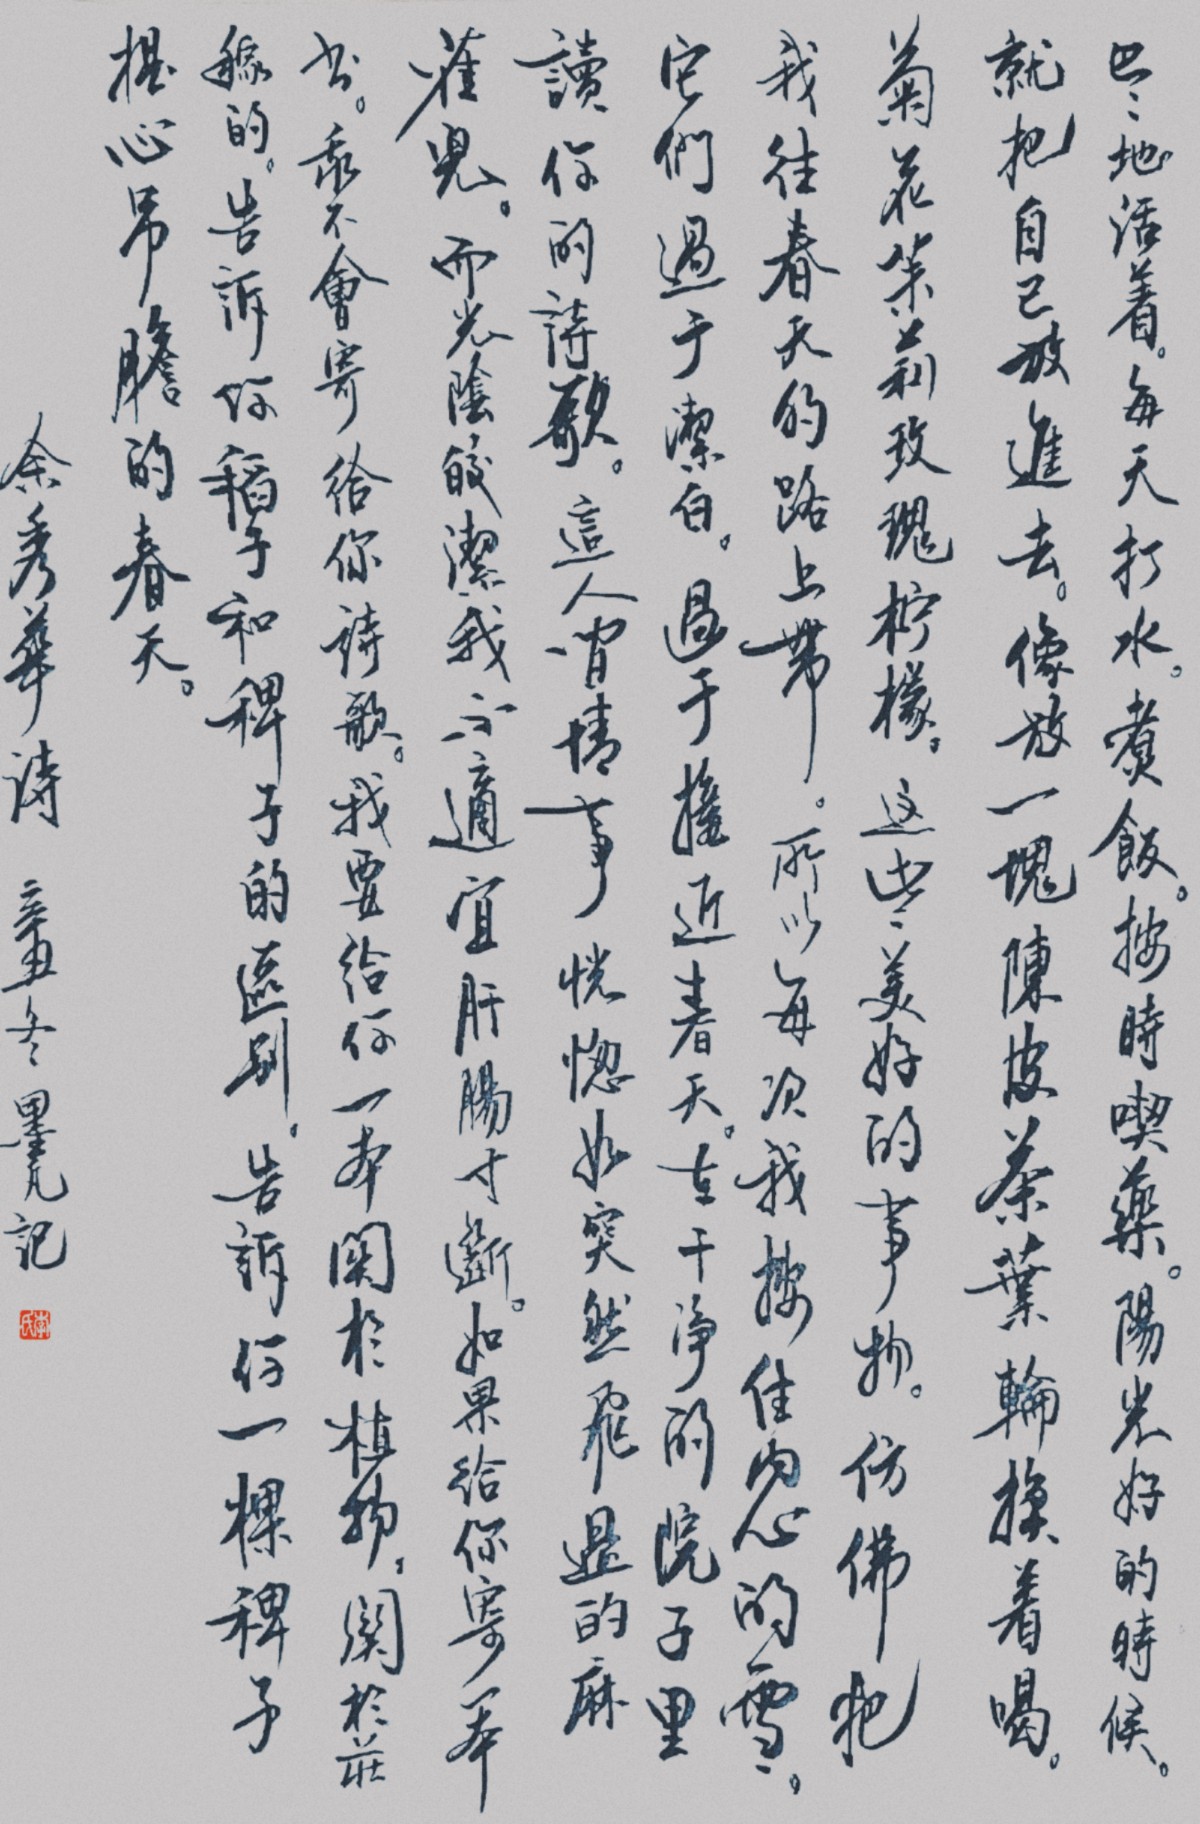 巴〻地活着。每天打水。煮飯。按時喫藥。陽光好的時候。
就把自己放進去。像放一塊陳皮茶葉輪換着喝。
菊花茉莉玫瑰柠檬。这些美好的事物。仿佛把
我往春天的路上帶。所以每次我按住内心的雪。
它們過于潔白。過于接近春天。在干净的院子里
讀你的詩歌。這人间情事恍惚如突然飛過的麻
雀兒。而光陰皎潔。我不適宜肝腸寸斷。如果給你寄一本
书。我不會寄給你詩歌。我要給你一本関於植物。關於莊
稼的。告訴你稻子和稗子的區别。告訴你一棵稗子
提心吊膽的春天。
余秀華詩 辛丑冬墨凡記
李氏